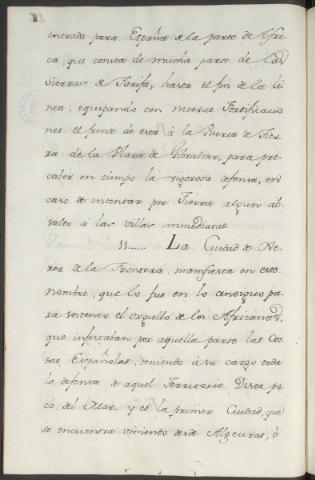 entrada para España de la parte de Afri
ca, que consta de mucha parte de las
Sierras de Tarifa, hasta el fin de la li
nea, equipando con necesar Fortificacio
nes el frente de esta á la Puerta de Tier
ra de la Plaza de Gibraltar, para pre
caber en tiempo la vigorosa defensa, en
caso de intentar por Tierra algun ab
salto á las villas inmediatas.
11...... La Ciudad de Xe
rez de la Frontera, manifiesta en este
nombre, que lo fue en lo antiguo pa
ra sostener el orgullo de los Africanos,
que infestaban por aquella parte las Cos
tas Españolas, teniendo á su cargo toda
la defensa de aquel Territorio. Dista po
co del Mar, y es la primer Ciudad, que
se encuentra viniendo desde Algeciras, ó